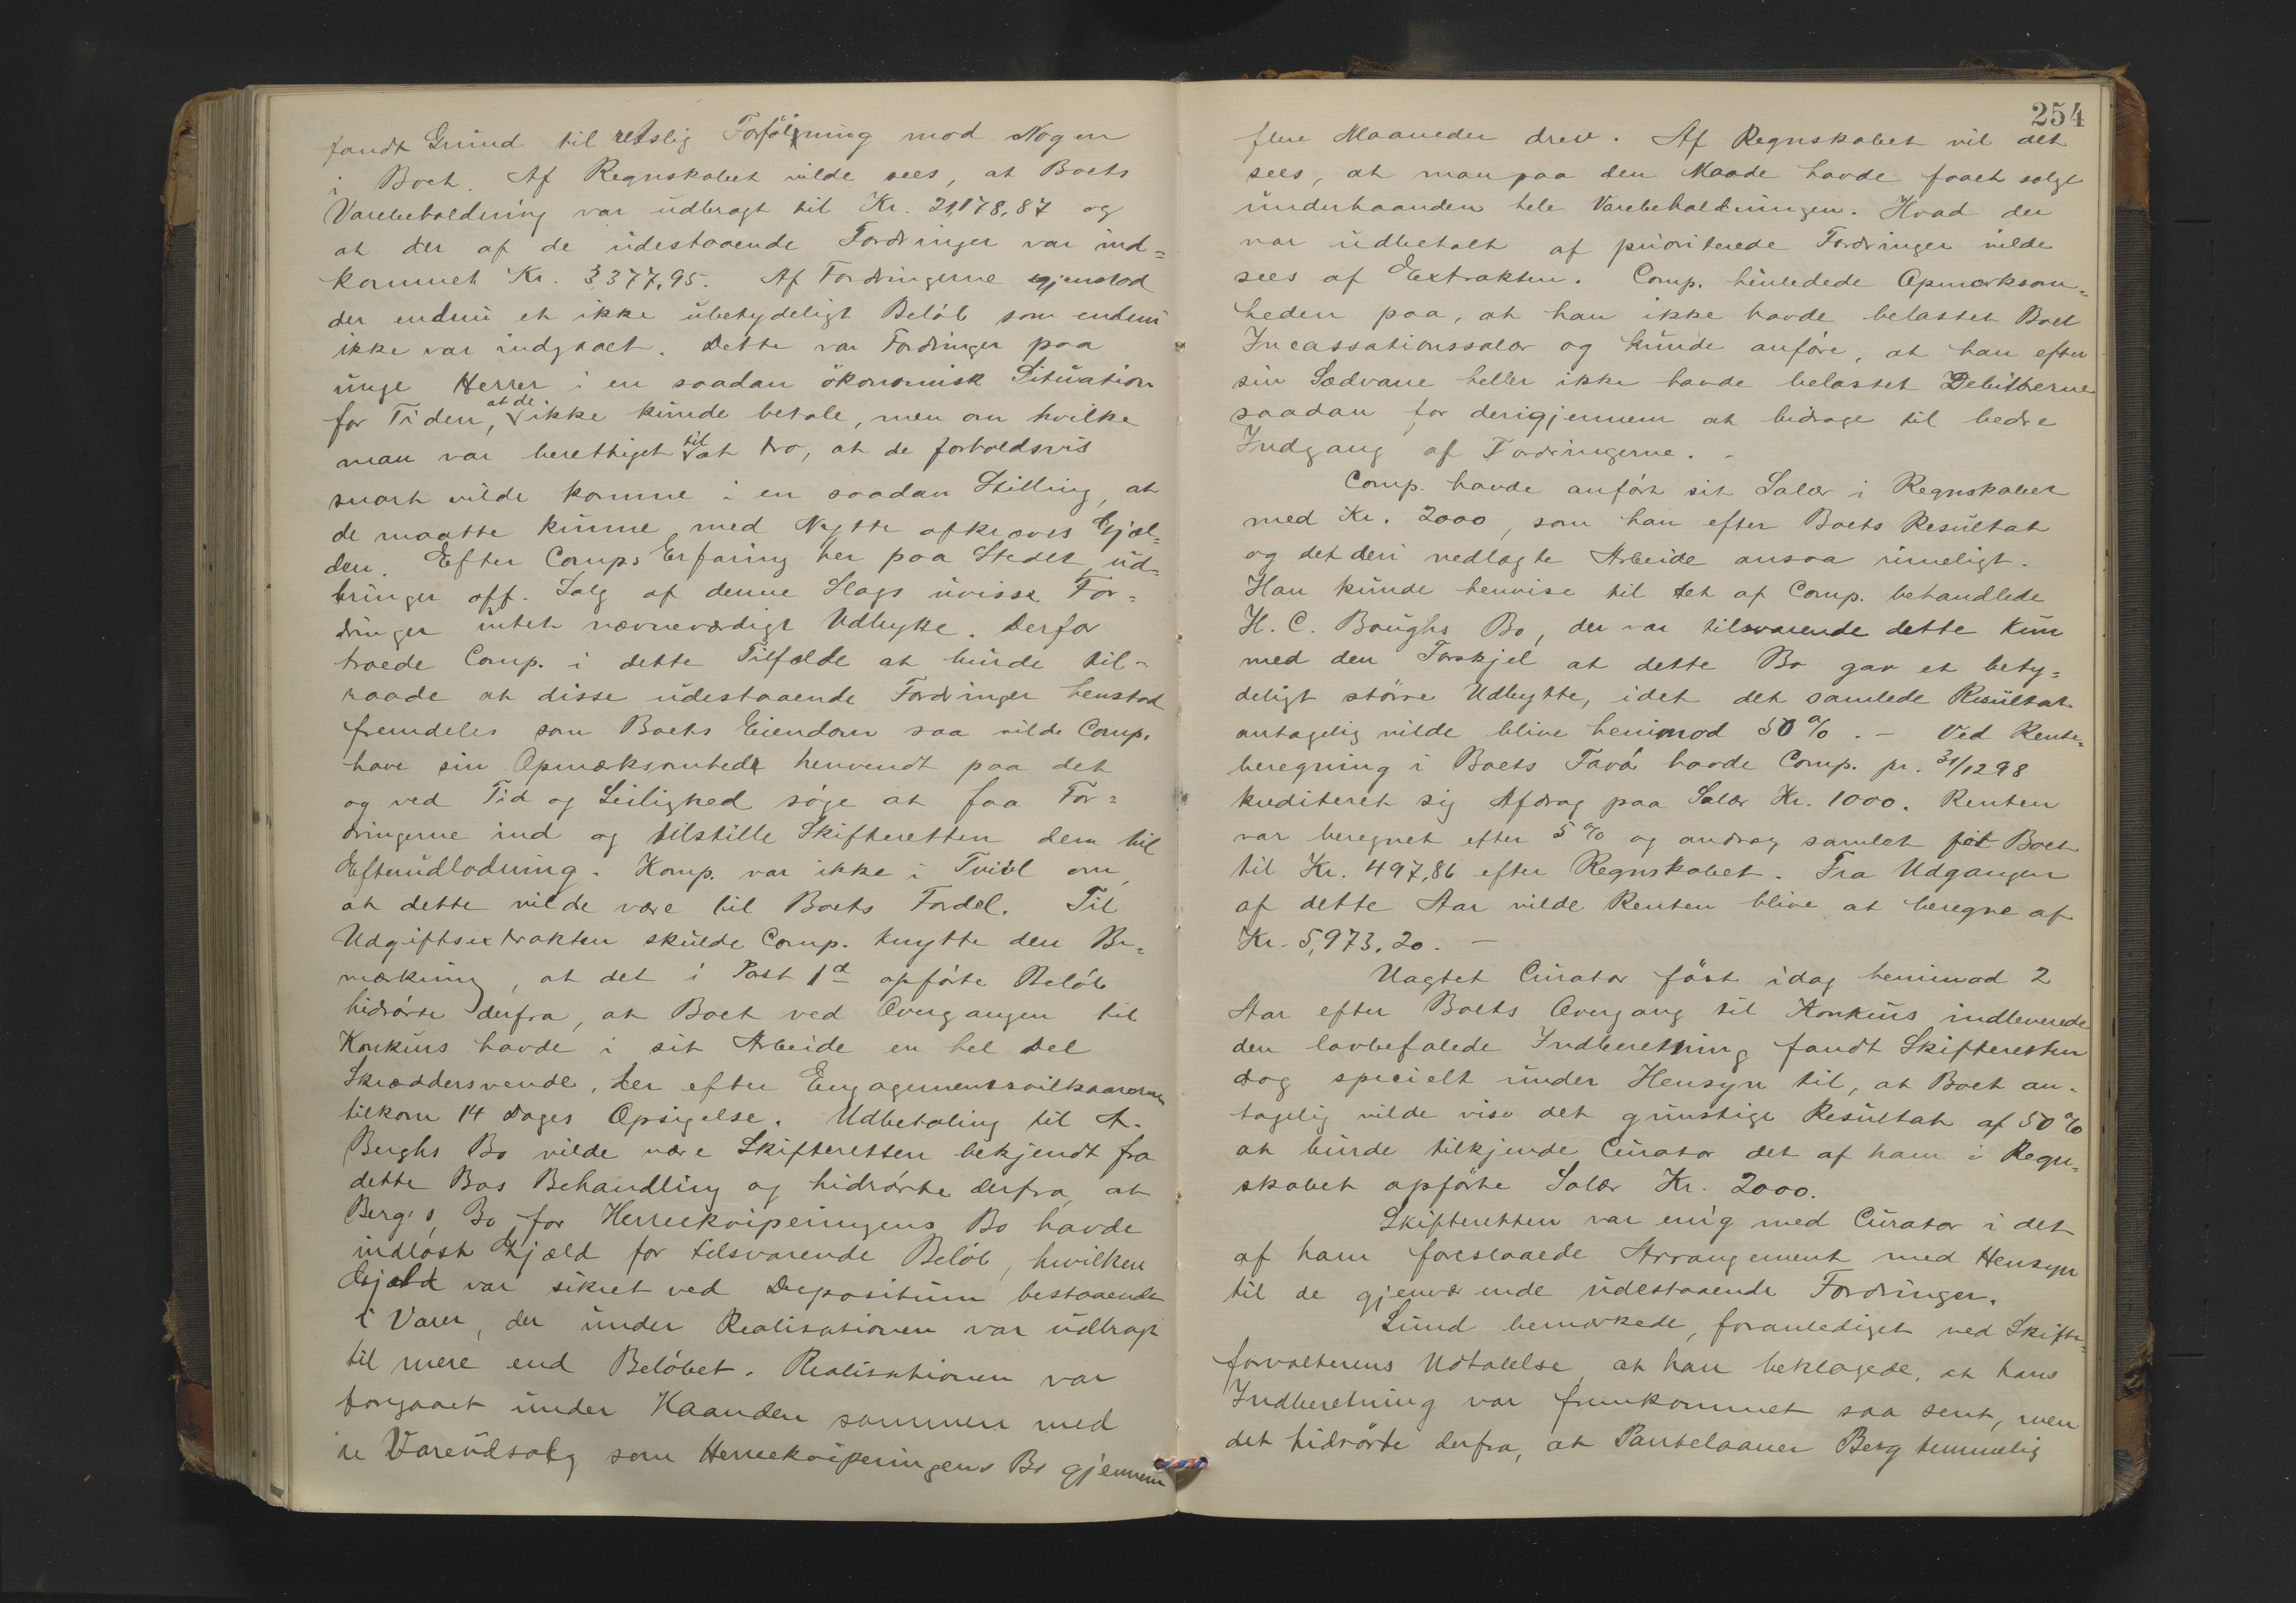 fandt Grund til retslig Forfölgning mod Nogen
i Boet. Af Regnskabet vilde sees, at Boets
Varebeholdning var udbragt til Kr. 21,178,87 og
at der af de udestaaende Fordringer var ind=
kommet Kr. 3,377,95. Af Fordringerne gjenstod
der endnu et ikke ubetydeligt Belöb som endnu
ikke var indgaaet. Dette var Fordringer paa
unge Herrer i en saadan ökonomisk Situation
for Tiden, at de ikke kunde betale, men om hvilke
man var berettiget til at tro, at de forholdsvis
snart vilde komme i en saadan Stilling, at
de maatte kunne med Nytte afkræves Gjæl=
den. Efter Comps Erfaring her paa Stedet ud=
bringer off. Salg af denne Slags uvisse For=
dringer intet nævneværdigt Udbytte. Derfor
troede Comp. i dette Tilfælde at burde til=
raade at disse udestaaende Fordringer henstod
fremdeles som Boets Eiendom saa vilde Comp.
have sin Opmærksomhed henvendt paa det
og ved Tid og Leilighed söge at faa For=
dringerne ind og tilstille Skifteretten dem til
Efterudlodning. Komp. var ikke i Tvivl om,
at dette vilde være til Boets Fordel. Til
Udgiftsextrakten skulde Comp. knytte den Be=
mærkning, at det i Post 1d opförte Belöb
hidrörte derfra, at Boet ved Overgangen til
Konkurs havde i sit Arbeide en hel Del
Skræddersvende, der efter Engagementsvilkaarene
tilkom 14 Dages Opsigelse. Udbetaling til A.
Berghs Bo vilde være Skifteretten bekjendt fra
dette Bos Behandling og hidrörte derfra, at
Berg's Bo for Herreekviperingens Bo havde
indlöst Gjæld for tilsvarende Belöb, hvilken
Gjæld var sikret ved Depositum bestaaende
i Varer, der under Realisationen var udbragt
til mere end Belöbet. Realisationen var
foregaaet under Haanden sammen med
Vareudsalg som Herreekviperingens Bo gjennem
254
flere Maaneder drev. Af Regnskabet vil det
sees, at man paa den Maade havde faaet solgt
underhaanden hele Varebeholdningen. Hvad der
var udbetalt af prioriterede Fordringer vilde
sees af Extrakten. Comp. henledede Opmærksom=
heden paa, at han ikke havde belastet Boet
Incassationssalær og kunde anföre, at han efter
sin Sædvane heller ikke havde belastet Debitorerne
saadan for derigjennem at bidrage til bedre
Indgang af Fordringerne. -
Comp. havde anfört sit Salær i Regnskabet
med Kr. 2000, som han efter Boets Resultat
og det deri nedlagte Arbeide ansaa rimeligt.
Han kunde henvise til det af Comp. behandlede
H. C. Boughs Bo, der var tilsvarende dette kun
med den Forskjel at dette Bo gav et bety=
deligt större Udbytte, idet det samlede Resultat
antagelig vilde blive henimod 50 %. - Ved Rente=
beregning i Boets Favör havde Comp. pr. 31/12 98
krediteret sig Afdrag paa Salær Kr. 1000. Renten
var beregnet efter 5 % og androg samlet for Boet
til Kr. 497,86 efter Regnskabet. Fra Udgangen
af dette Aar vilde Renten blive at beregne af
Kr. 5,973.20. -
Uagtet Curator först idag henimod 2
Aar efter Boets Overgang til Konkurs indleverede
den lovbefalede Indberetning fandt Skifteretten
dog specielt under Hensyn til, at Boet an=
tagelig vilde vise det gunstige Resultat af 50 %
at burde tilkjende Curator det af ham i Regn=
skabet opförte Salær Kr. 2000.
Skifteretten var enig med Curator i det
af ham foreslaaede Arrangement med Hensyn
til de gjenværende udestaaende Fordringer.
Lund bemærkede, foranlediget ved Skifte=
forvalterens Udtalelse at han beklagede, at hans
Indberetning var fremkommet saa sent, men
det hidrörte derfra, at Pantelaaner Berg temmelig